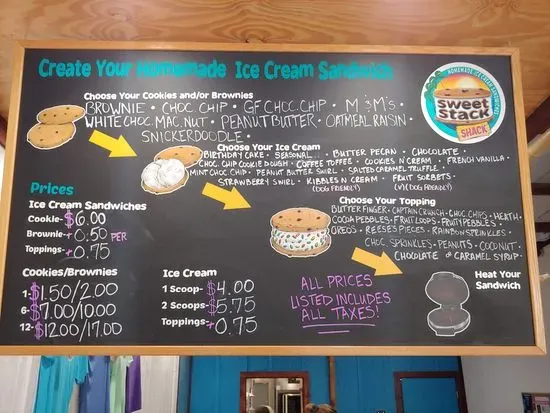 Create Your Homemade Ice Cream Sandwich
HOMEMADE ICE CREAM SANDWICHES
Sweet
Stack
SHACK
Choose Your Cookies and/or Brownies
BROWNIE • CHOC. CHIP • GF CHOC. CHIP • M&M's •
WHITE CHOC. MAC. NUT • PEANUT BUTTER • OATMEAL RAISIN •
SNICKERDOODLE •
Choose Your Ice Cream
BIRTHDAY CAKE • SEASONAL... • BUTTER PECAN • CHOCOLATE •
CHOC. CHIP COOKIE DOUGH • COFFEE TOFFEE • COOKIES N' CREAM • FRENCH VANILLA •
MINT CHOC. CHIP • PEANUT BUTTER SWIRL • SALTED CARAMEL TRUFFLE •
STRAWBERRY SWIRL • KIBBLES N CREAM • FRUIT SORBETS •
(DOG FRIENDLY) (V) (DOG FRIENDLY)
Choose Your Topping
BUTTERFINGER • CAPTAIN CRUNCH • CHOC. CHIPS • HEATH •
COCOA PEBBLES • FRUIT LOOPS • FRUITY PEBBLES •
OREOS • REESE'S PIECES • RAINBOW SPRINKLES •
CHOC. SPRINKLES • PEANUTS • COCONUT •
CHOCOLATE or CARAMEL SYRUP •
Heat Your
Sandwich
Prices
Ice Cream Sandwiches
Cookie- $6.00
Brownie- + 0.50 PER
Toppings- + 0.75
Cookies/Brownies
1- $1.50/2.00
6- $7.00/10.00
12- $12.00/17.00
Ice Cream
1 Scoop- $4.00
2 Scoops- $5.75
Toppings- + 0.75
ALL PRICES
LISTED INCLUDES
ALL TAXES!